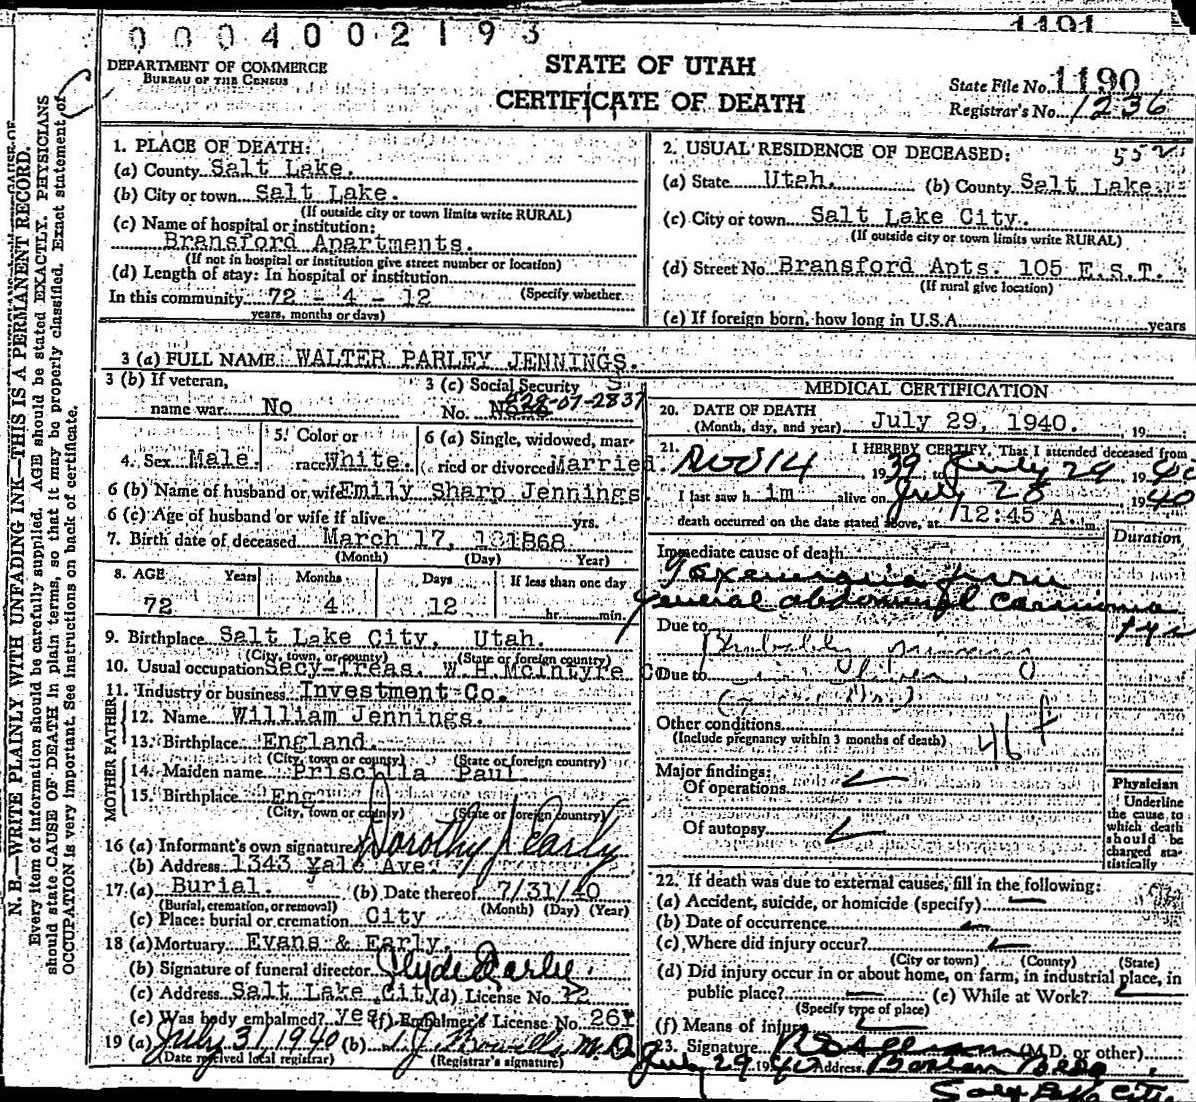 0004002193
1191
DEPARTMENT OF COMMERCE
BUREAU OF THE CENSUS
STATE OF UTAH
CERTIFICATE OF DEATH
State File No. 1190
Registrar's No. 1236
N. B.—WRITE PLAINLY WITH UNFADING INK—THIS IS A PERMANENT RECORD.
Every item of information should be carefully supplied. AGE should be stated EXACTLY. PHYSICIANS
should state CAUSE OF DEATH in plain terms, so that it may be properly classified. Exact statement of
OCCUPATION is very important. See instructions on back of certificate.
1. PLACE OF DEATH:
(a) County Salt Lake.
(b) City or town Salt Lake.
(If outside city or town limits write RURAL)
(c) Name of hospital or institution:
Bransford Apartments.
(If not in hospital or institution give street number or location)
(d) Length of stay: In hospital or institution
In this community 72 - 4 - 12 (Specify whether
years, months or days)
2. USUAL RESIDENCE OF DECEASED:
(a) State Utah. (b) County Salt Lake.
(c) City or town Salt Lake City.
(If outside city or town limits write RURAL)
(d) Street No. Bransford Apts. 105 E.S.T.
(If rural give location)
(e) If foreign born, how long in U.S.A. years
3 (a) FULL NAME WALTER PARLEY JENNINGS.
3 (b) If veteran, name war No
3 (c) Social Security No. 528-07-2837
4. Sex Male. 5. Color or race White. 6 (a) Single, widowed, married or divorced Married.
6 (b) Name of husband or wife Emily Sharp Jennings.
6 (c) Age of husband or wife if alive yrs.
7. Birth date of deceased March 17, 1868
(Month) (Day) Year)
8. AGE Years Months Days If less than one day
72 4 12 hr. min.
9. Birthplace Salt Lake City, Utah.
(City, town, or county) (State or foreign country)
10. Usual occupation Secy-Treas. W.H.McIntyre Co
11. Industry or business Investment Co.
FATHER
12. Name William Jennings.
13. Birthplace England.
(City, town or county) (State or foreign country)
MOTHER
14. Maiden name Priscilla Paul
15. Birthplace Eng
(City, town or county) (State or foreign country)
16 (a) Informant's own signature Dorothy J Early
(b) Address 1343 Yale Ave.
17. (a) Burial. (b) Date thereof 7/31/40
(Burial, cremation, or removal) (Month) (Day) (Year)
(c) Place: burial or cremation City
18 (a) Mortuary Evans & Early.
(b) Signature of funeral director Clyde Early.
(c) Address Salt Lake City (d) License No.
(e) Was body embalmed? yes (f) Embalmer's License No. 261
19 (a) July 31 1940 (b) M.D.
(Date received local registrar) (Registrar's signature)
MEDICAL CERTIFICATION
20. DATE OF DEATH
(Month, day, and year) July 29, 1940. 19
21. I HEREBY CERTIFY, That I attended deceased from
Aug 14 1939, to July 29 1940
I last saw h im alive on July 28 1940
death occurred on the date stated above, at 12:45 A. m.
Duration
Immediate cause of death
from
general abdominal carcinoma
Due to
Probably primary
Due to
Other conditions
(Include pregnancy within 3 months of death)
46 f
Major findings:
Of operations
Of autopsy
Physician
Underline the cause to which death should be charged statistically
22. If death was due to external causes, fill in the following:
(a) Accident, suicide, or homicide (specify)
(b) Date of occurrence
(c) Where did injury occur?
(City or town) (County) (State)
(d) Did injury occur in or about home, on farm, in industrial place, in
public place? (e) While at Work?
(Specify type of place)
(f) Means of injury
23. Signature (M.D. or other)
July 29 1940 Address Boston Bldg
Salt Lake City